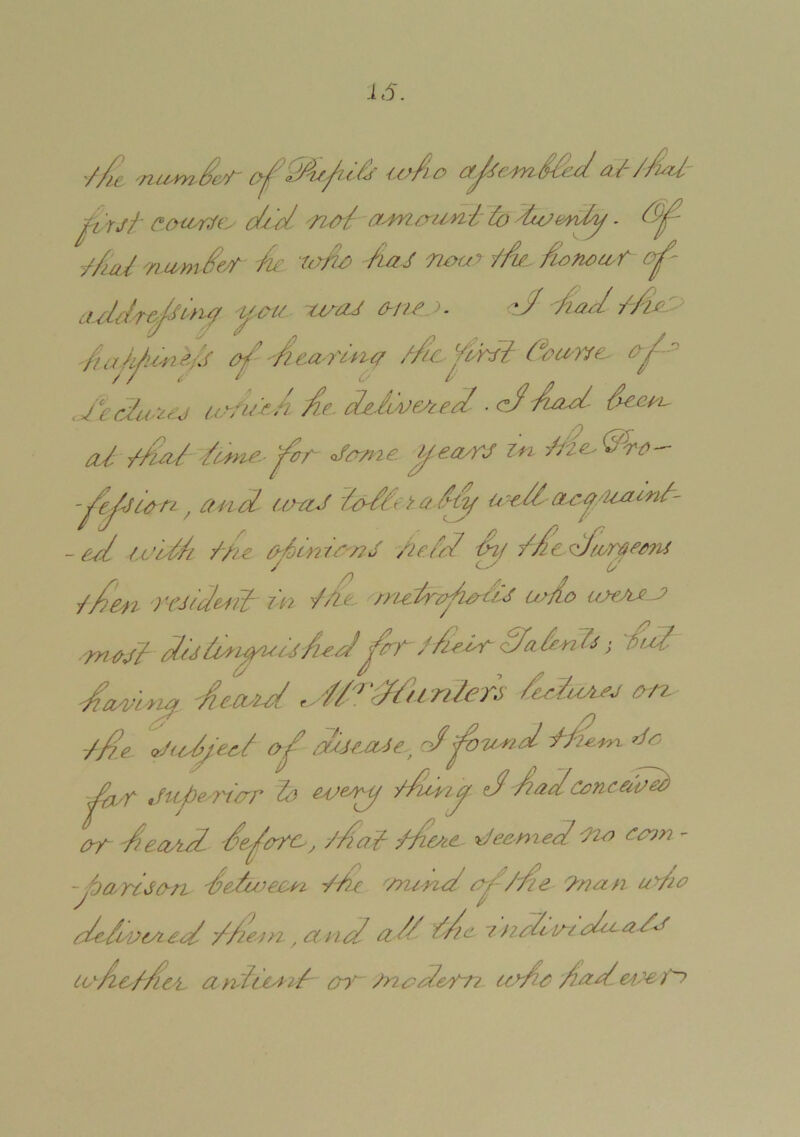 15.
the number of Pupils who assembled at that
first course did not amount to twenty. Of
that number he who has now the honour of
addressing you was one. I had the
happiness of hearing the first Course of
Lectures which he delivered. I had been
at that time for some years in the Pro-
-fession, and was tollerably well acquaint-
-ed with the opinions held by the Surgeons
then resident in the metropolis who were
most distinguished for their Talents; but
having heard Mr Hunters lectures on
the Subject of disease, I found them so
far superior to every thing I had conceived
or heard before, that there seemed no com-
-parison between the mind of the man who
delivered them, and all the individuals
whether antient or modern who had ever